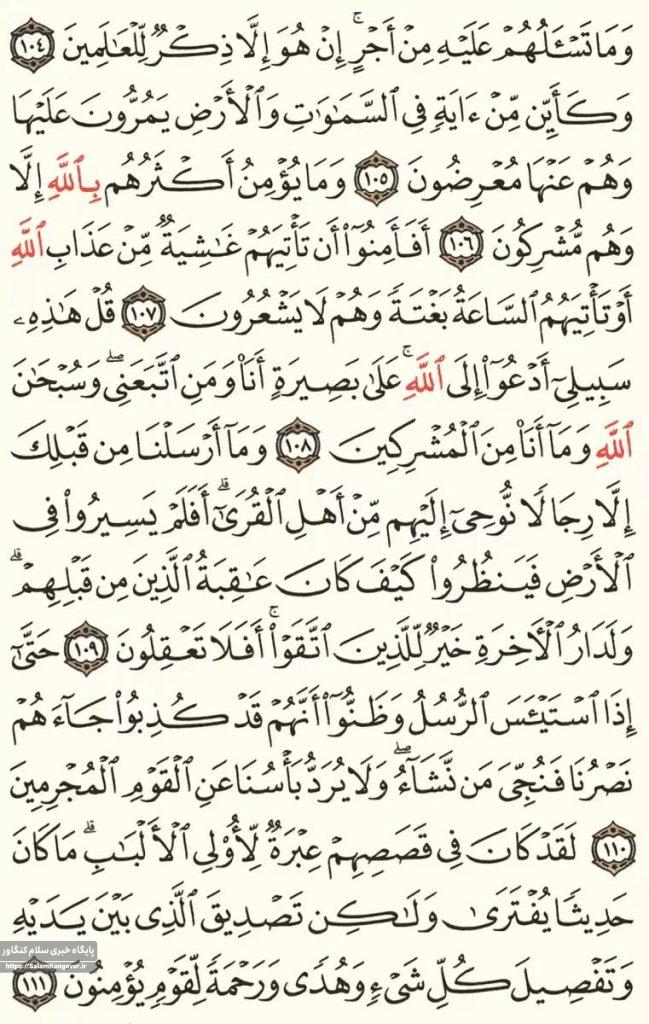 وَمَا تَسْـَٔلُهُمْ عَلَيْهِ مِنْ أَجْرٍ ۚ إِنْ هُوَ إِلَّا ذِكْرٌ لِّلْعَـٰلَمِينَ ١٠٤
وَكَأَيِّن مِّنْ ءَايَةٍ فِى ٱلسَّمَـٰوَٰتِ وَٱلْأَرْضِ يَمُرُّونَ عَلَيْهَا
وَهُمْ عَنْهَا مُعْرِضُونَ ١٠٥ وَمَا يُؤْمِنُ أَكْثَرُهُم بِٱللَّهِ إِلَّا
وَهُم مُّشْرِكُونَ ١٠٦ أَفَأَمِنُوٓا۟ أَن تَأْتِيَهُمْ غَـٰشِيَةٌ مِّنْ عَذَابِ ٱللَّهِ
أَوْ تَأْتِيَهُمُ ٱلسَّاعَةُ بَغْتَةً وَهُمْ لَا يَشْعُرُونَ ١٠٧ قُلْ هَـٰذِهِۦ
سَبِيلِىٓ أَدْعُوٓا۟ إِلَى ٱللَّهِ ۚ عَلَىٰ بَصِيرَةٍ أَنَا۠ وَمَنِ ٱتَّبَعَنِى ۖ وَسُبْحَـٰنَ
ٱللَّهِ وَمَآ أَنَا۠ مِنَ ٱلْمُشْرِكِينَ ١٠٨ وَمَآ أَرْسَلْنَا مِن قَبْلِكَ
إِلَّا رِجَالًا نُّوحِىٓ إِلَيْهِم مِّنْ أَهْلِ ٱلْقُرَىٰٓ ۗ أَفَلَمْ يَسِيرُوا۟ فِى
ٱلْأَرْضِ فَيَنظُرُوا۟ كَيْفَ كَانَ عَـٰقِبَةُ ٱلَّذِينَ مِن قَبْلِهِمْ ۗ
وَلَدَارُ ٱلْـَٔاخِرَةِ خَيْرٌ لِّلَّذِينَ ٱتَّقَوْا۟ ۚ أَفَلَا تَعْقِلُونَ ١٠٩ حَتَّىٰٓ
إِذَا ٱسْتَيْـَٔسَ ٱلرُّسُلُ وَظَنُّوٓا۟ أَنَّهُمْ قَدْ كُذِبُوا۟ جَآءَهُمْ
نَصْرُنَا فَنُجِّىَ مَن نَّشَآءُ ۖ وَلَا يُرَدُّ بَأْسُنَا عَنِ ٱلْقَوْمِ ٱلْمُجْرِمِينَ
١١٠ لَقَدْ كَانَ فِى قَصَصِهِمْ عِبْرَةٌ لِّأُو۟لِى ٱلْأَلْبَـٰبِ ۗ مَا كَانَ
حَدِيثًا يُفْتَرَىٰ وَلَـٰكِن تَصْدِيقَ ٱلَّذِى بَيْنَ يَدَيْهِ
وَتَفْصِيلَ كُلِّ شَىْءٍ وَهُدًى وَرَحْمَةً لِّقَوْمٍ يُؤْمِنُونَ ١١١
پایگاه خبری سلام کنگاور
https://SalamKangavar.ir